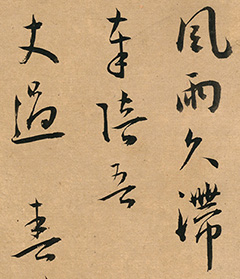 風雨久滯
奉陪吾
丈過